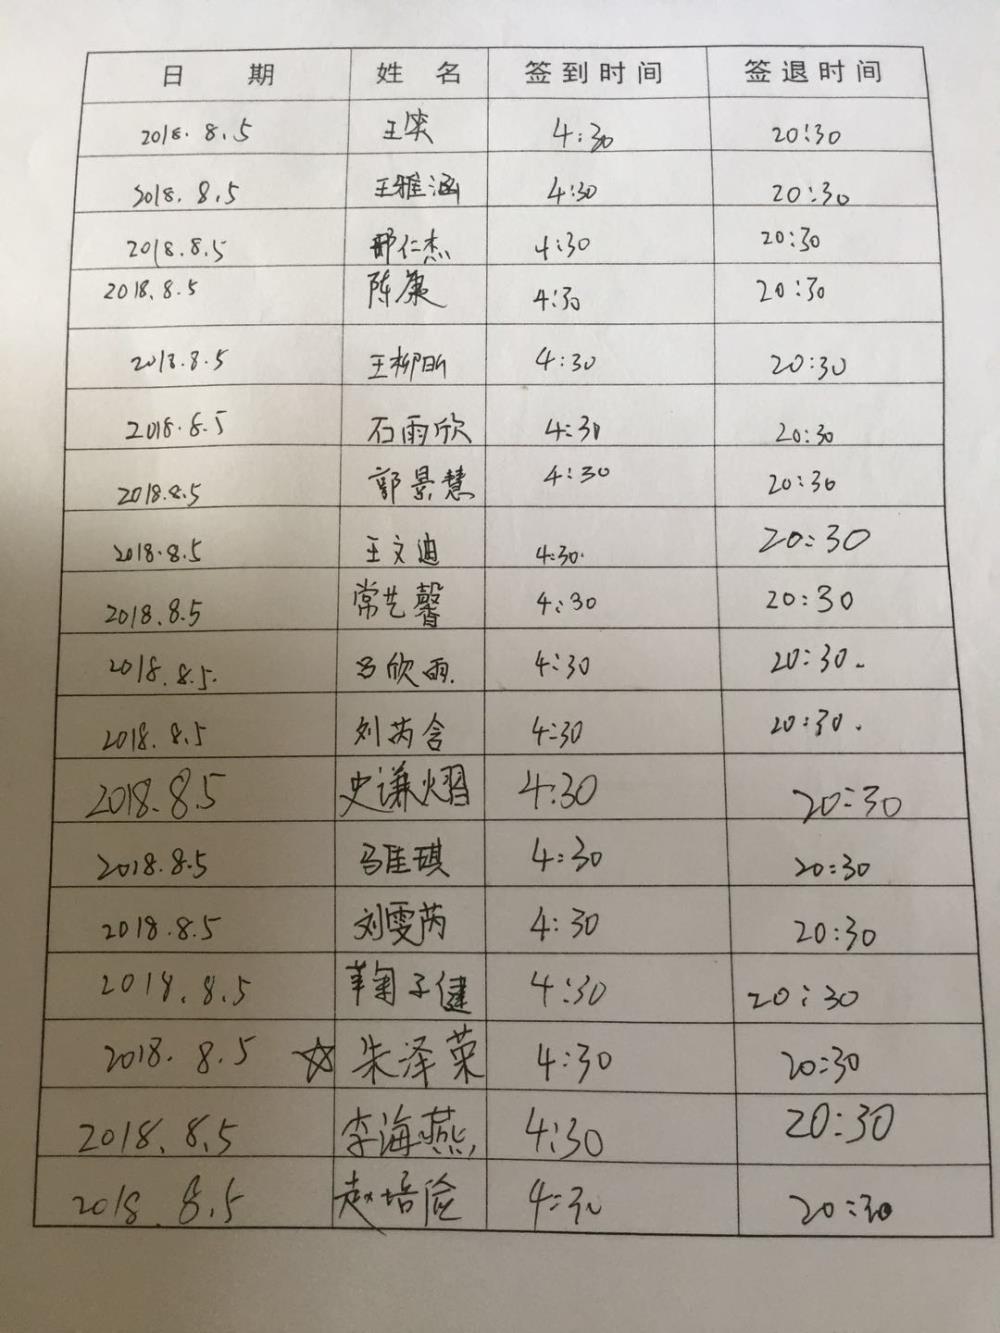 日 期 姓 名 签到时间 签退时间
2018.8.5 王 4:30 20:30
2018.8.5 王雅涵 4:30 20:30
2018.8.5 邢仁杰 4:30 20:30
2018.8.5 陈康 4:30 20:30
2018.8.5 王柳昕 4:30 20:30
2018.8.5 石雨欣 4:30 20:30
2018.8.5 郭景慧 4:30 20:30
2018.8.5 王文迪 4:30. 20:30
2018.8.5 常艺馨 4:30 20:30
2018.8.5. 吕欣雨. 4:30 20:30.
2018.8.5 刘芮含 4:30 20:30.
2018.8.5 史谦熠 4:30 20:30
2018.8.5 马佳琪 4:30 20:30
2018.8.5 刘雯芮 4:30 20:30
2018.8.5 鞠子健 4:30 20:30
2018.8.5 ☆ 朱泽荣 4:30 20:30
2018.8.5 李海燕 4:30 20:30
2018.8.5 赵培俭 4:30 20:30